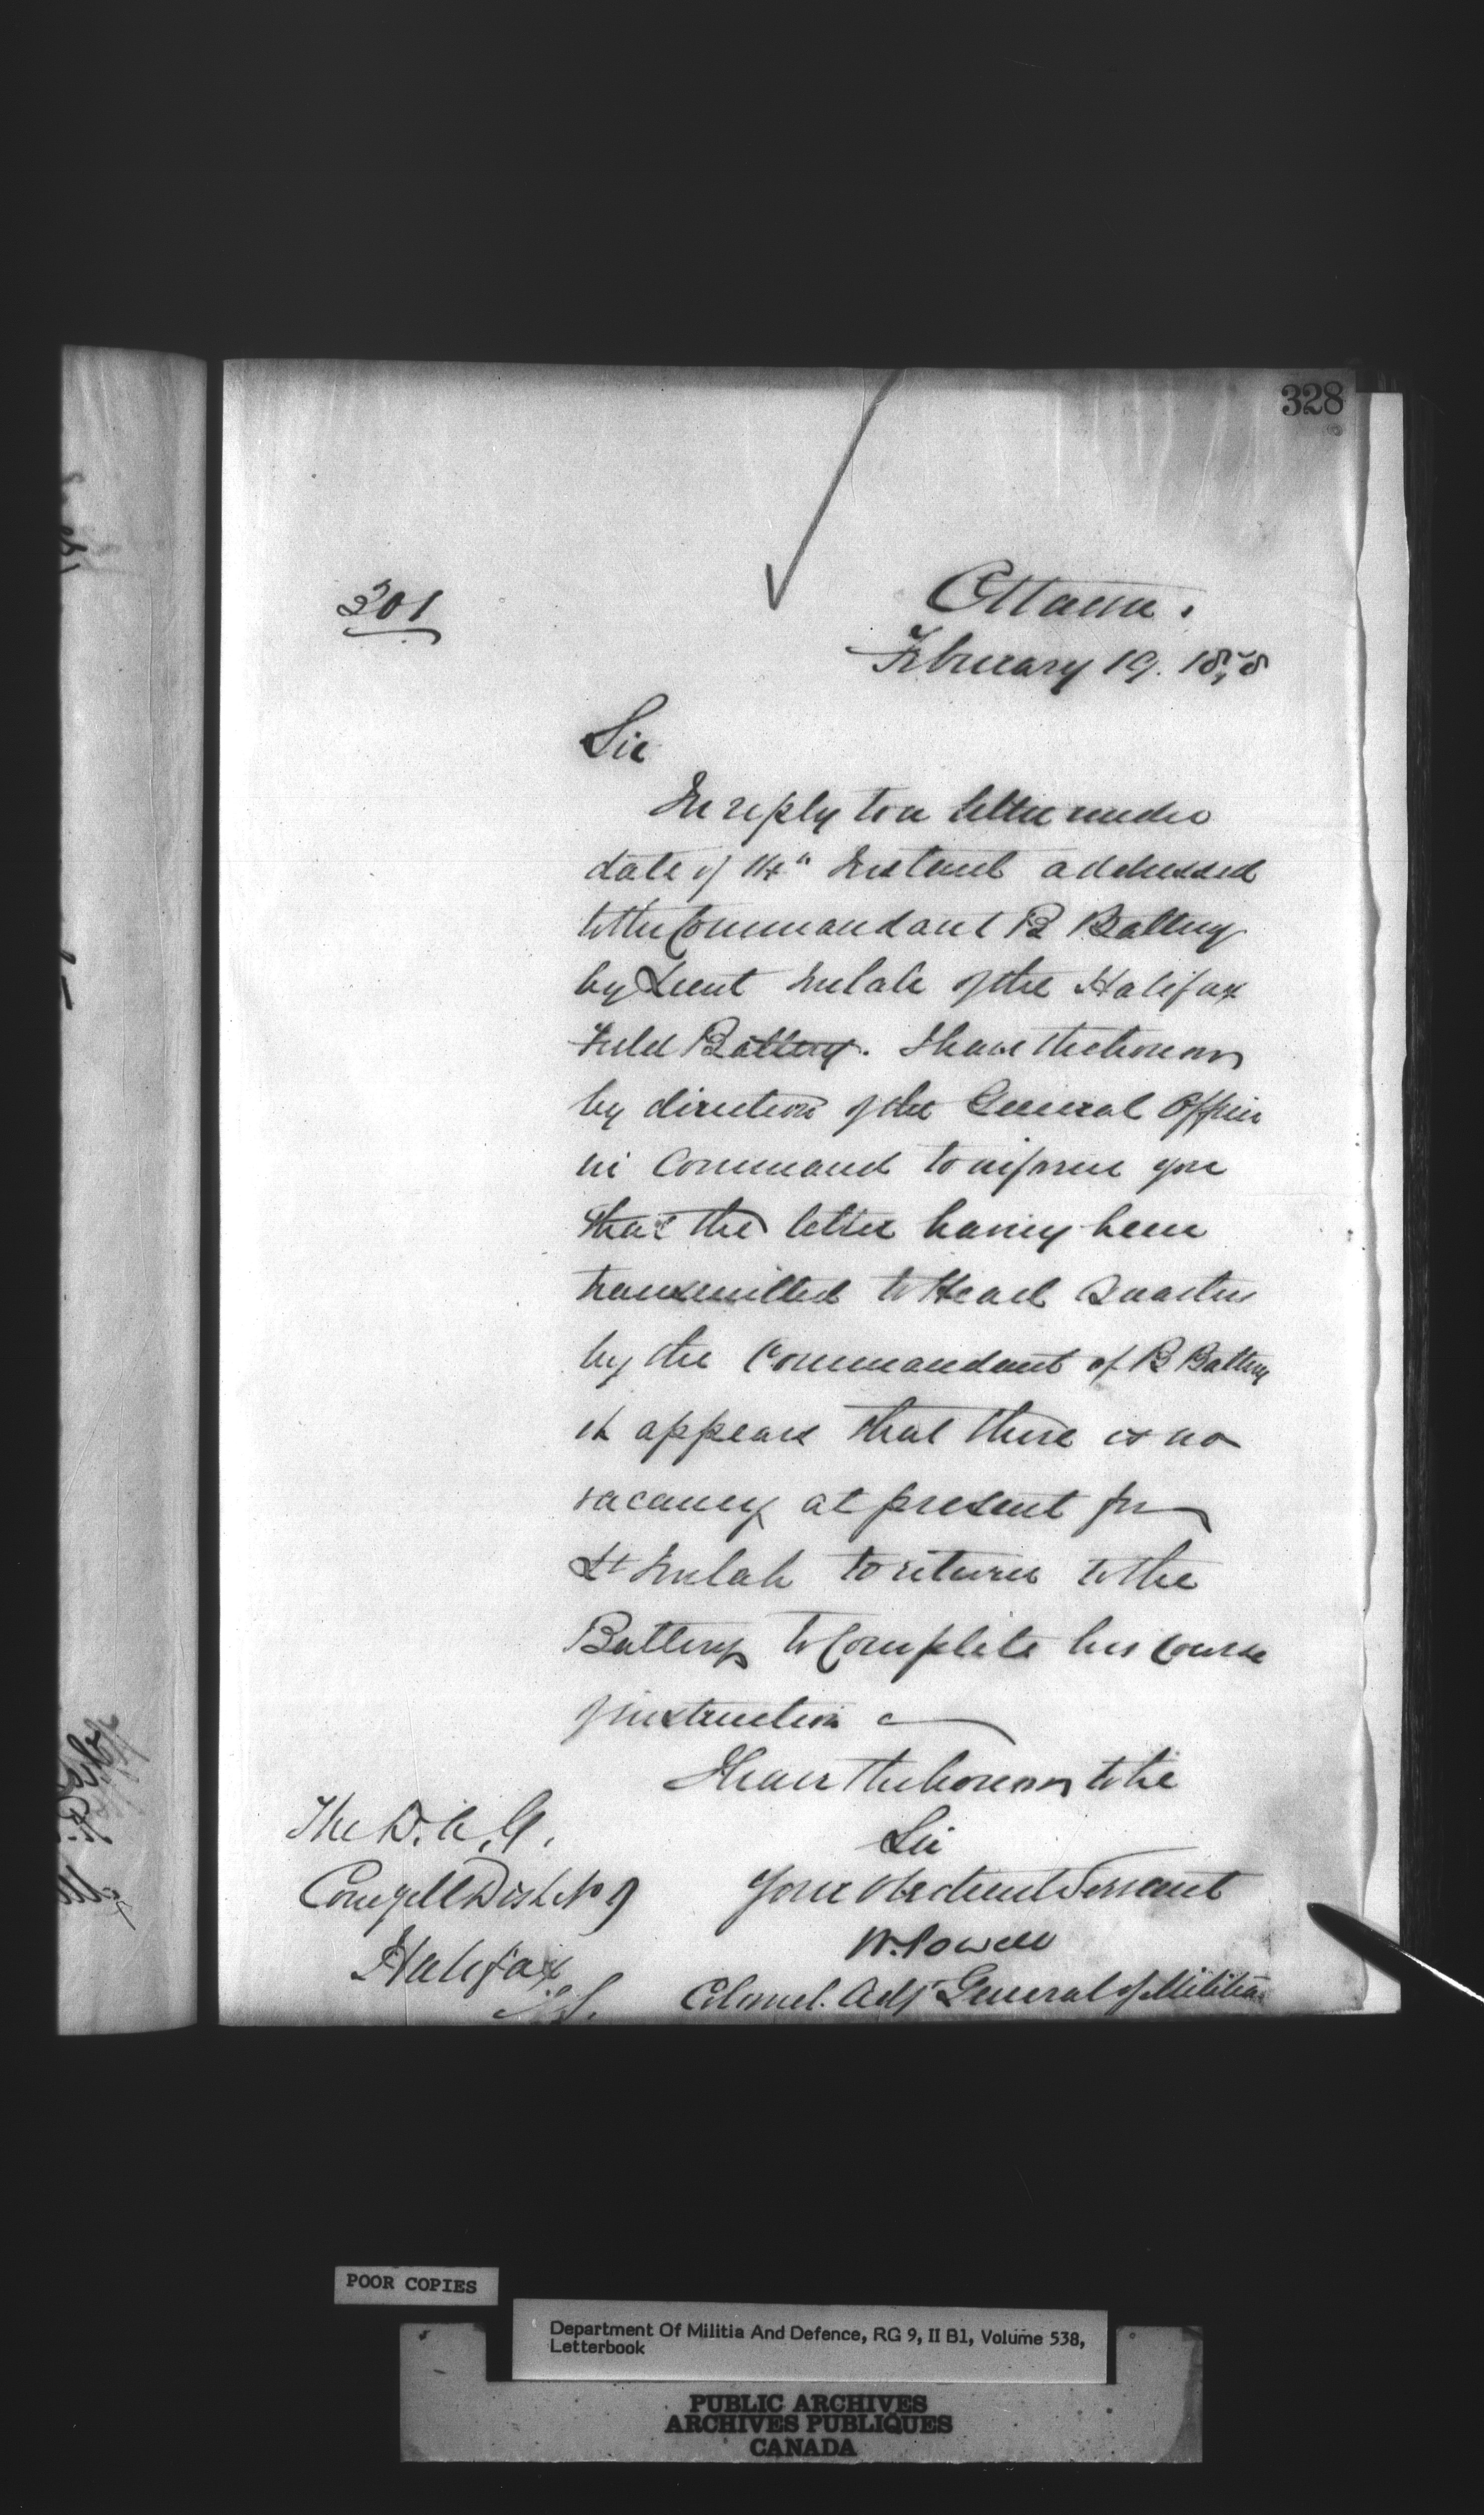 328
201
Ottawa.
February 19. 1878
Sir
In reply to a letter under
date of 14" Instant addressed
to the Commandant B Battery
by Lieut of the Halifax
Field Battery. I have the honor
by direction of the General Officer
in Command to inform you
that the letter having been
transmitted to Head Quarters
by the Commandant of B Battery
it appears that there is no
vacancy at present for
Lt to return to the
Battery to Complete his Course
of instruction
I have the honor to be
Sir
Your Obedient Servant
W. Powell
Colonel. Adjt General of Militia
The D.A.G.
Comg Mil Dist No 9
Halifax
N.S.
POOR COPIES
Department Of Militia And Defence, RG 9, II B1, Volume 538,
Letterbook
PUBLIC ARCHIVES
ARCHIVES PUBLIQUES
CANADA